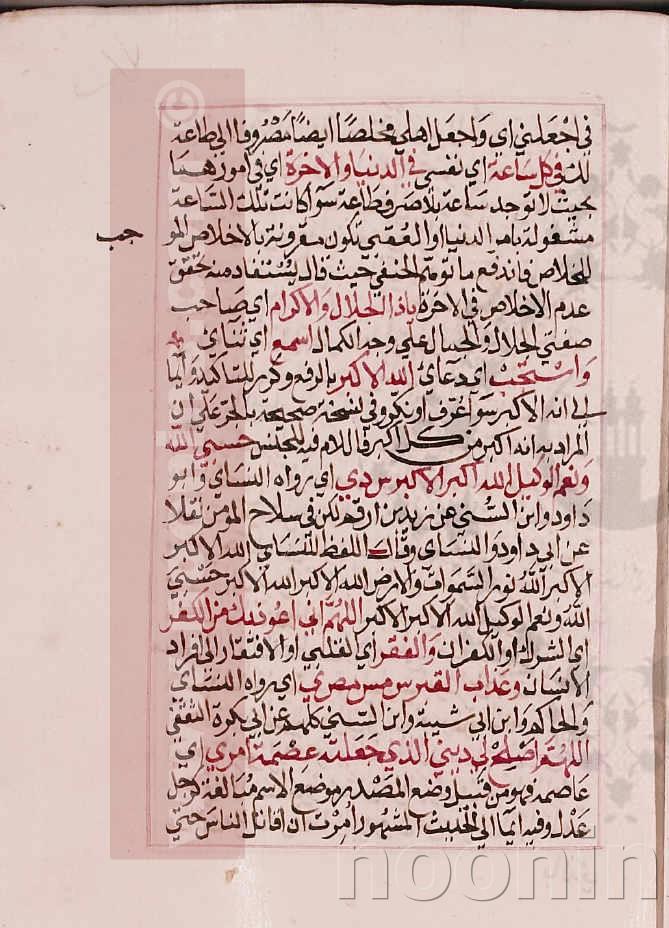 في اجعلني اي واجعل اهلي مخلصا ايضا مصروفا الى طاعة
لك في كل ساعة اي نفسي في الدنيا والاخرة اي في امورهما
بحيث لا توجد ساعة بلا صرف طاعة سوا كانت تلك الساعة
مشغولة بامر الدنيا او العقبى تكون مقرونة بالاخلاص المو
حب
للخلاص فاندفع ما توهم الحنفي حيث قال يستفاد منه تحقق
عدم الاخلاص في الاخرة ياذا الجلال والاكرام اي صاحب
صفتي الجلال والجمال على وجه الكمال اسمع اي ثنائي
واستجب اي دعائ الله الاكبر بالرفع وكرر للتاكيد وايما
الى انه الاكبر سوا عرف او نكر وفي نسخة صحيحة بالجر على ان
المراد به انه اكبر من كل اكبر فاللام فيه للجنس حسبي الله
ونعم الوكيل الله اكبر الاكبر س دي اي رواه النساي وابو
داود وابن السني عن زيد بن ارقم لكن في سلاح المؤمن نقلا
عن ابي داود والنساي وقال اللفظ للنساي الله الاكبر
الاكبر الله نور السموات والارض الله الاكبر الله الاكبر حسبي
الله ونعم الوكيل الله الاكبر الاكبر اللهم اني اعوذ بك من الكفر
اي الشرك او الكفران والفقر اي القلبي او الافتقار الى افراد
الانسان وعذاب القبر س مس مص ي اي رواه النساي
والحاكم وابن ابي شيبة وابن السني كلهم عن ابي بكرة الثقفي
اللهم اصلح لي ديني الذي جعلته عصمة امري اي
عاصمه فهو من قبيل وضع المصدر موضع الاسم مبالغة كرجل
عدل وفيه ايما الى الحديث المشهور امرت ان اقاتل الناس حتى
noonin